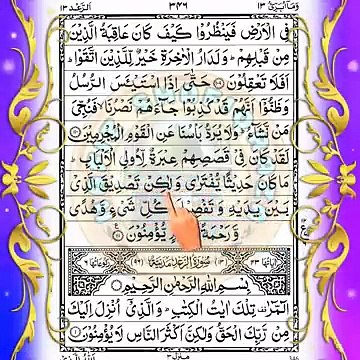 وما ابرئ ١٣ ٣٤٦ الرعد ١٣
فِى الْاَرْضِ فَيَنْظُرُوْا كَيْفَ كَانَ عَاقِبَةُ الَّذِيْنَ
مِنْ قَبْلِهِمْ ؕ وَلَدَارُ الْاٰخِرَةِ خَيْرٌ لِّلَّذِيْنَ اتَّقَوْا ؕ
اَفَلَا تَعْقِلُوْنَ حَتّٰۤى اِذَا اسْتَيْـَٔسَ الرُّسُلُ
وَظَنُّوْۤا اَنَّهُمْ قَدْ كُذِبُوْا جَآءَهُمْ نَصْرُنَا ۙ فَنُجِّىَ
مَنْ نَّشَآءُ ؕ وَلَا يُرَدُّ بَاْسُنَا عَنِ الْقَوْمِ الْمُجْرِمِيْنَ
لَقَدْ كَانَ فِىْ قَصَصِهِمْ عِبْرَةٌ لِّاُولِى الْاَلْبَابِ ؕ
مَا كَانَ حَدِيْثًا يُّفْتَرٰى وَلٰكِنْ تَصْدِيْقَ الَّذِىْ
بَيْنَ يَدَيْهِ وَتَفْصِيْلَ كُلِّ شَىْءٍ وَّهُدًى
وَّرَحْمَةً يُّؤْمِنُوْنَ
اٰياتها ٤٣ (١٣) سُوْرَةُ الرَّعْدِ مَدَنِيَّةٌ (٩٦) ركوعاتها ٦
بِسْمِ اللّٰهِ الرَّحْمٰنِ الرَّحِيْمِ
الٓمّٓرٰ ۚ تِلْكَ اٰيٰتُ الْكِتٰبِ ؕ وَالَّذِىْۤ اُنْزِلَ اِلَيْكَ
مِنْ رَّبِّكَ الْحَقُّ وَلٰكِنَّ اَكْثَرَ النَّاسِ لَا يُؤْمِنُوْنَ
منزل ٣